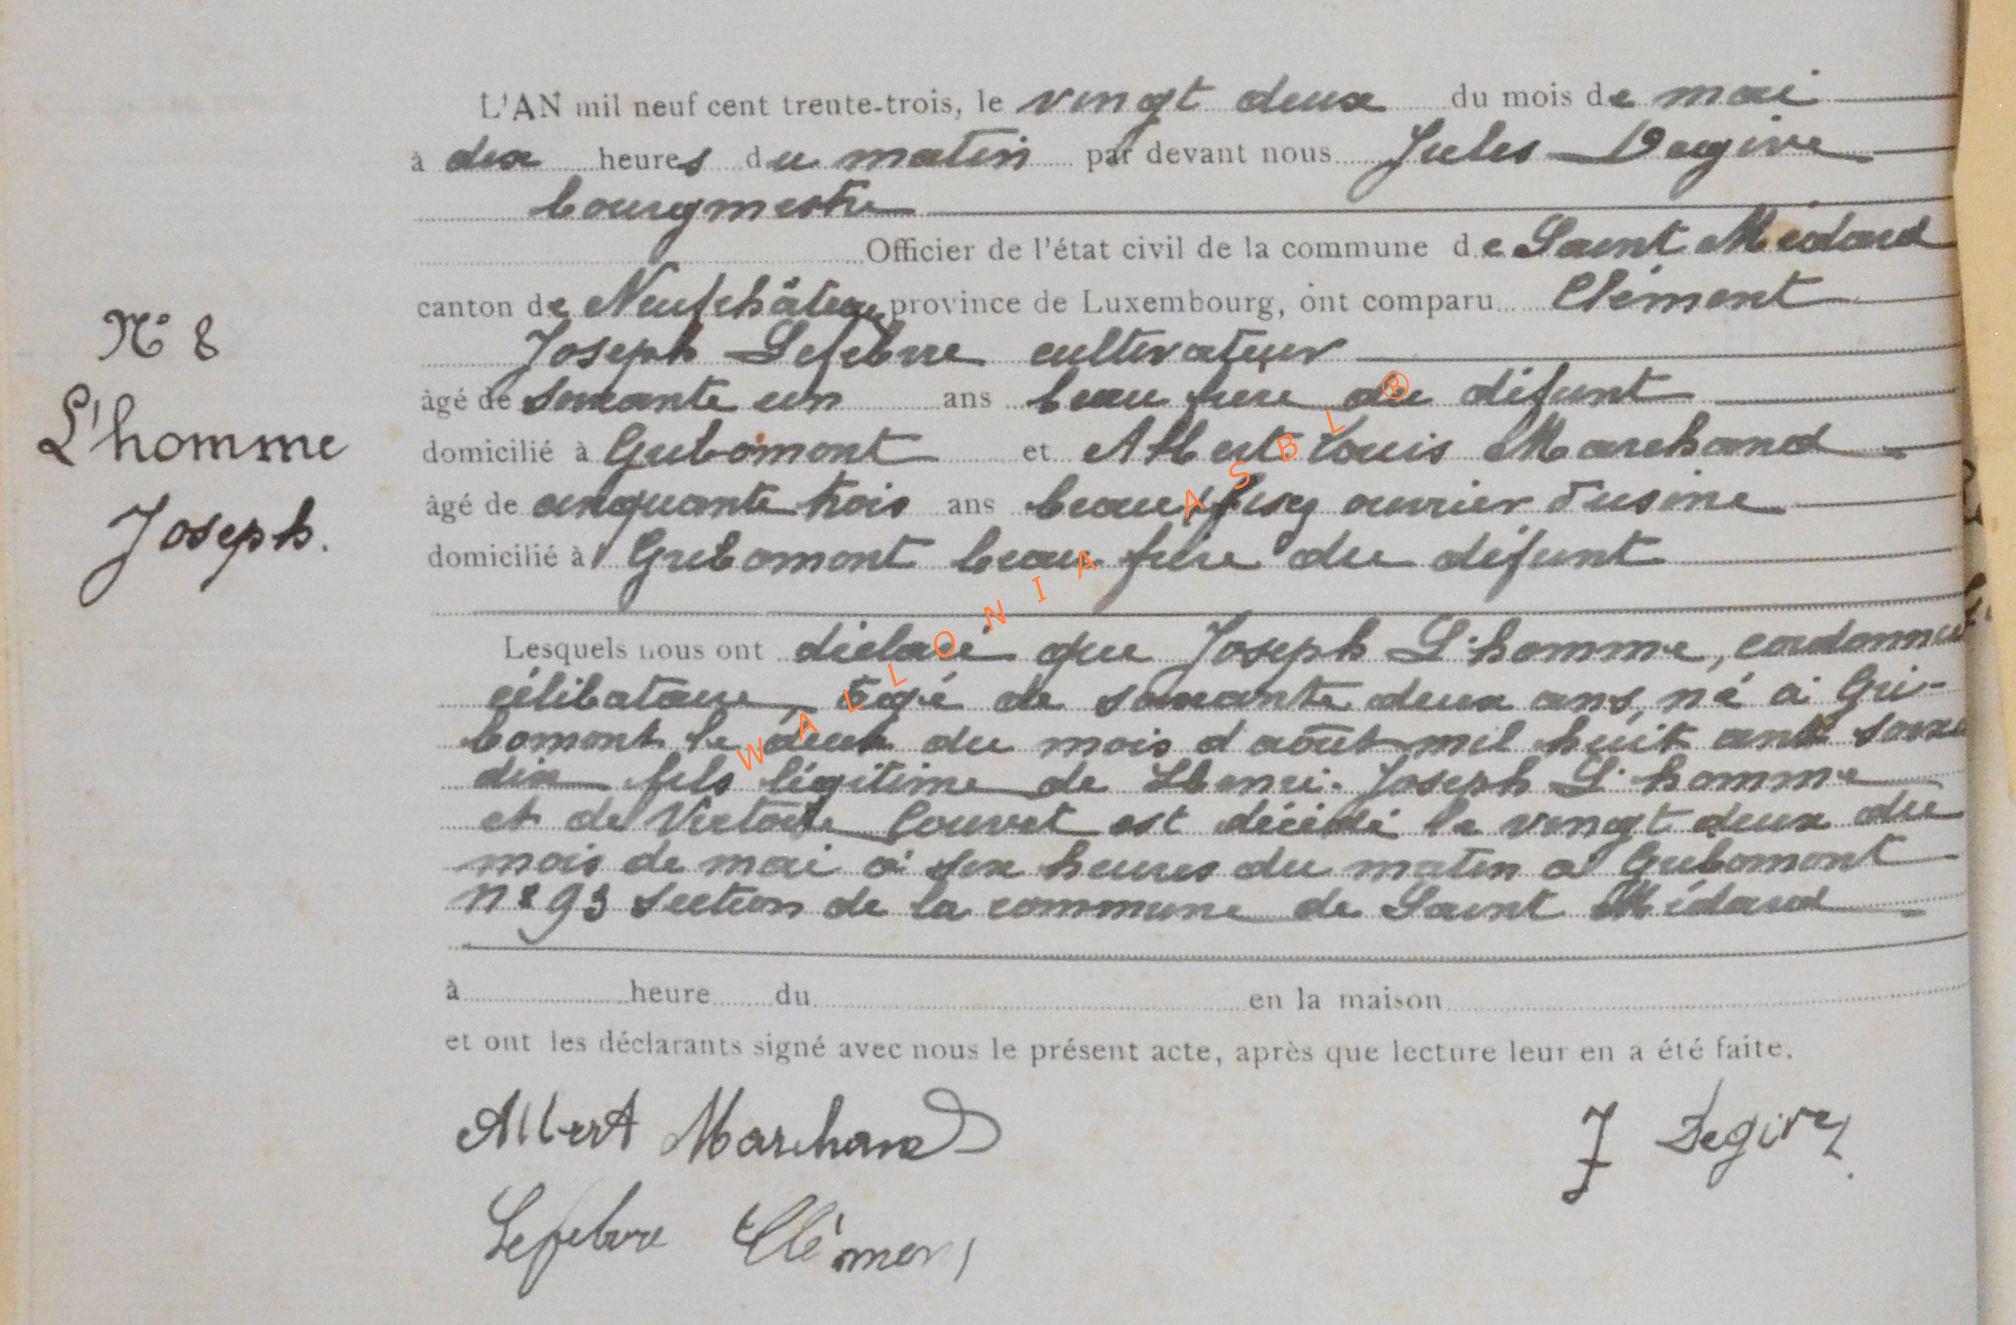 L'AN mil neuf cent trente-trois, le vingt deux du mois de mai
à dix heures du matin par devant nous Jules Degive
bourgmestre
Officier de l'état civil de la commune de Saint Médard
canton de Neufchâteau province de Luxembourg, ont comparu Clément
Joseph Lefebvre cultivateur
âgé de soixante un ans beau frère du défunt
domicilié à Gribomont et Albert Louis Marchand
âgé de cinquante trois ans beau ouvrier d'usine
domicilié à Gribomont beau frère du défunt
N° 8
L'homme
Joseph.
Lesquels nous ont déclaré que Joseph L'homme, cordonnier
célibataire, âgé de soixante deux ans, né à Gri-
bomont le deux du mois d'août mil huit cent soixante
dix fils légitime de Henri-Joseph L'homme
et de Victoire Louvet est décédé le vingt deux du
mois de mai à six heures du matin à Gribomont
N° 93 section de la commune de Saint Médard
à heure du en la maison
et ont les déclarants signé avec nous le présent acte, après que lecture leur en a été faite.
Albert Marchand
J Degive
Lefebvre Clément
WALLONIA ASBL ®